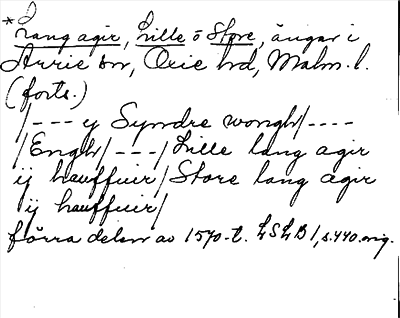 *Lang agir, Lille o Store, ängar i
Arrie sn, Oxie hd, Malm. l.
(forts.)
/--- ij Syndre wongh/----
/Engh/---/Lille lang agir
ij hauffuir/Store lang agir
ij hauffuir/
förra delen av 1570-t. LSLB1, s. 440. orig.